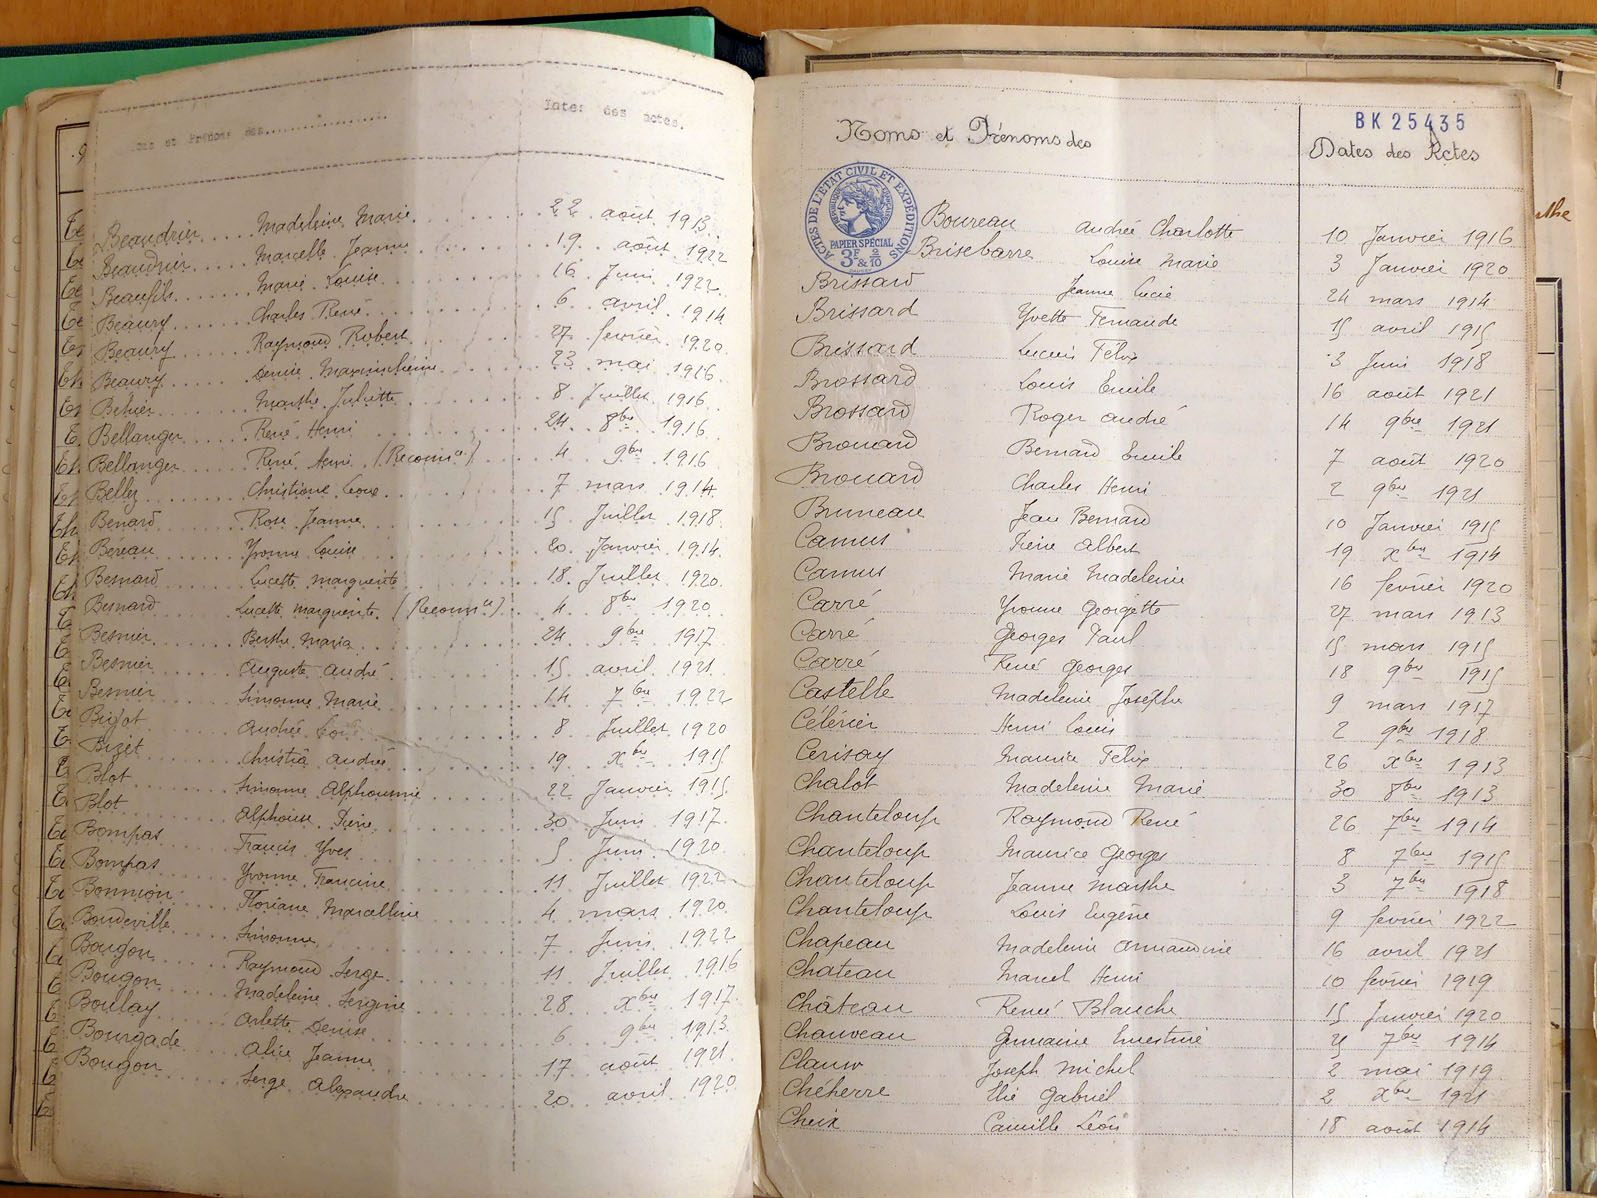 et Prénoms des................. Dates des actes.
Beaudrier Madeleine Marie 22 août 1913
Beaudrier Marcelle Jeanne 19 août 1922
Beaufils Marie Louise 16 Juin 1922
Beaury Charles René 6 avril 1914
Beaury Raymond Robert 27 fevrier 1920
Beaury Denise Maximilienne 23 mai 1916
Marthe Juliette 8 Juillet 1916
Bellanger René Henri 24 8bre 1916
Bellanger René Henri (Reconnce) 4 9bre 1916
Christiane 7 mars 1914
Benard Rose Jeanne 15 Juillet 1918
Béreau Yvonne Louise 20 Janvier 1914
Besnard Lucette marguerite 18 Juillet 1920
Besnard Lucette marguerite (Reconnce) 4 8bre 1920
Besnier Berthe Maria 24 9bre 1917
Besnier Auguste André 15 avril 1921
Besnier Simonne Marie 14 7bre 1922
Bigot Andrée 8 Juillet 1920
Bizet André 19 xbre 1915
Blot Simonne Alphonsine 22 Janvier 1915
Blot Alphonse Pierre 30 Juin 1917
Bompas Francis Yves 5 Juin 1920
Bompas Yvonne Francine 11 Juillet 1922
Bonnion Floriane Marcelline 4 mars 1920
Boudeville Simonne 7 Juin 1922
Bougon Raymond Serge 11 Juillet 1916
Bougon Madeleine 28 xbre 1917
Boulay Arlette Denise 6 9bre 1913
Bourgade Alice Jeanne 17 août 1921
Bougon Serge Alexandre 20 avril 1920
BK 25435
Noms et Prénoms des Dates des Actes
ACTES DE L'ÉTAT CIVIL ET EXPÉDITIONS
PAPIER SPÉCIAL
3F & 2/10
Boureau Andrée Charlotte 10 Janvier 1916
Brisebarre Louise Marie 3 Janvier 1920
Brissard Jeanne Lucie 24 mars 1914
Brissard Yvette Fernande 15 avril 1915
Brissard Lucien Félix 3 Juin 1918
Brossard Louis Emile 16 août 1921
Brossard Roger André 14 9bre 1921
Brouard Bernard Emile 7 août 1920
Brouard Charles Henri 2 9bre 1921
Bruneau Jean Bernard 10 Janvier 1915
Camus Pierre Albert 19 xbre 1914
Camus Marie Madeleine 16 fevrier 1920
Carré Yvonne Georgette 27 mars 1913
Carré Georges Paul 15 mars 1915
Carré René Georges 18 9bre 1915
Castelle Madeleine Josèphe 9 mars 1917
Célérier Henri Louis 2 9bre 1918
Cerisay Maurice Félix 26 xbre 1913
Chalot Madeleine Marie 30 8bre 1913
Chanteloup Raymond René 26 7bre 1914
Chanteloup Maurice Georges 8 7bre 1915
Chanteloup Jeanne Marthe 3 7bre 1918
Chanteloup Louis Eugène 9 fevrier 1922
Chapeau Madeleine Armandine 16 avril 1921
Chateau Marcel Henri 10 février 1919
Château Renée Blanche 15 Janvier 1920
Chauveau Germaine Ernestine 7bre 1914
Clauw Joseph Michel 2 mai 1919
Cheherre Elie Gabriel 2 xbre 1921
Cheix Camille Léon 18 août 1914